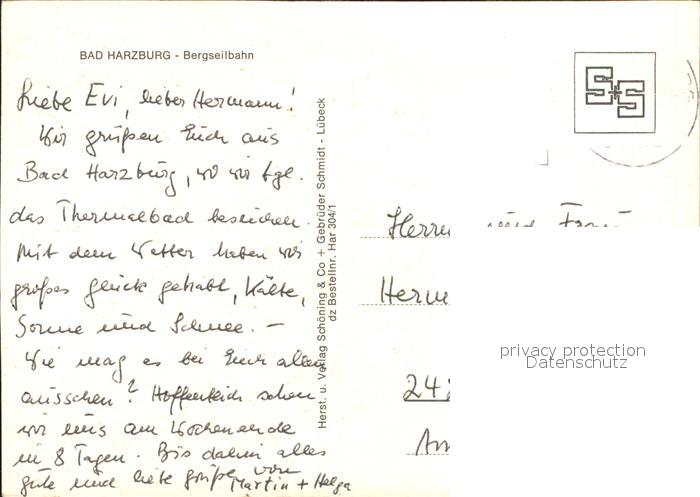 BAD HARZBURG - Bergseilbahn
S+S
Liebe Evi, lieber Hermann!
Wir grüßen Euch aus
Bad Harzburg, wo wir tgl.
das Thermalbad besuchen.
Mit dem Wetter haben wir
großes Glück gehabt, Kälte,
Sonne und Schnee. –
Wie mag es bei Euch allen
ausschen? Hoffentlich sehen
wir uns am Wochenende
in 8 Tagen. Bis dahin alles
gute und liebe Grüße von
Martin + Helga
Herst. u. Verlag Schöning & Co + Gebrüder Schmidt - Lübeck
dz Bestellnr. Har 304/1
Herrn und Frau
Herm
24
privacy protection
Datenschutz